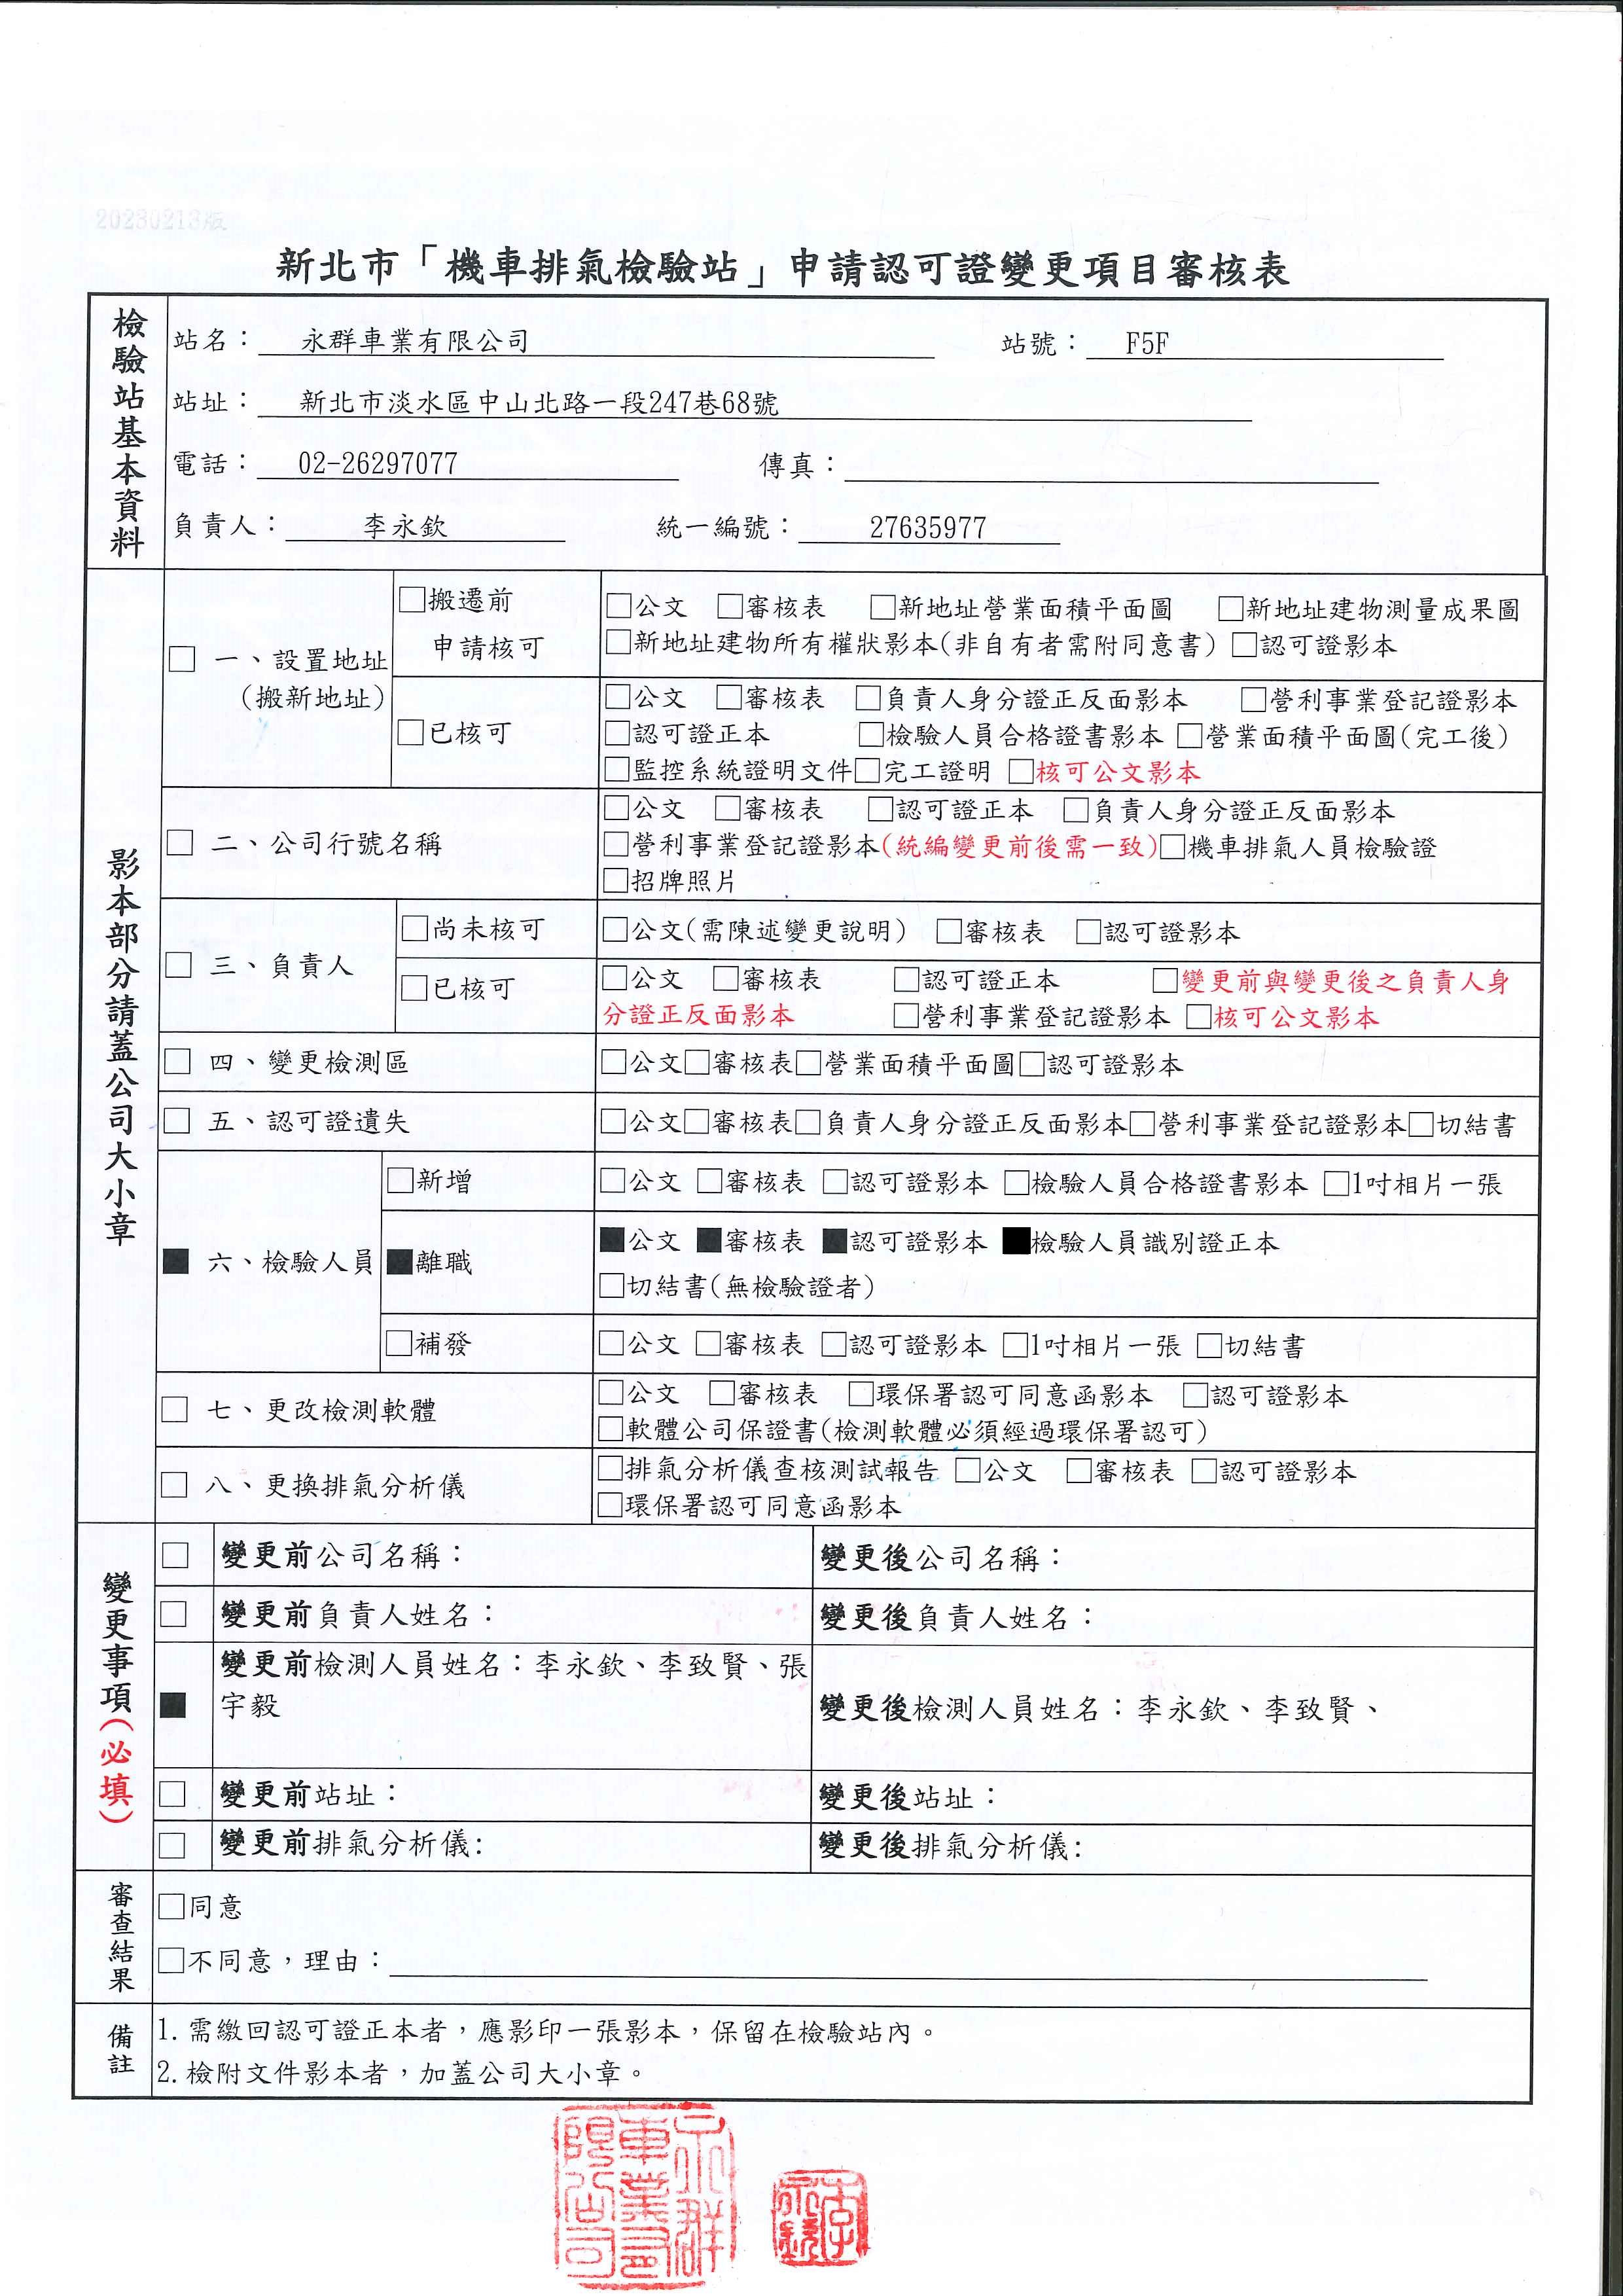 20230213版
新北市「機車排氣檢驗站」申請認可證變更項目審核表
檢驗站基本資料
站名： 永群車業有限公司 站號： F5F
站址： 新北市淡水區中山北路一段247巷68號
電話： 02-26297077 傳真：
負責人： 李永欽 統一編號： 27635977
影本部分請蓋公司大小章
□ 一、設置地址
（搬新地址）
□搬遷前
申請核可
□公文 □審核表 □新地址營業面積平面圖 □新地址建物測量成果圖
□新地址建物所有權狀影本(非自有者需附同意書) □認可證影本
□已核可
□公文 □審核表 □負責人身分證正反面影本 □營利事業登記證影本
□認可證正本 □檢驗人員合格證書影本 □營業面積平面圖(完工後)
□監控系統證明文件□完工證明 □核可公文影本
□ 二、公司行號名稱
□公文 □審核表 □認可證正本 □負責人身分證正反面影本
□營利事業登記證影本(統編變更前後需一致)□機車排氣人員檢驗證
□招牌照片
□ 三、負責人
□尚未核可
□公文(需陳述變更說明) □審核表 □認可證影本
□已核可
□公文 □審核表 □認可證正本 □變更前與變更後之負責人身
分證正反面影本 □營利事業登記證影本 □核可公文影本
□ 四、變更檢測區
□公文□審核表□營業面積平面圖□認可證影本
□ 五、認可證遺失
□公文□審核表□負責人身分證正反面影本□營利事業登記證影本□切結書
■ 六、檢驗人員
□新增
□公文 □審核表 □認可證影本 □檢驗人員合格證書影本 □1吋相片一張
■離職
■公文 ■審核表 ■認可證影本 ■檢驗人員識別證正本
□切結書(無檢驗證者)
□補發
□公文 □審核表 □認可證影本 □1吋相片一張 □切結書
□ 七、更改檢測軟體
□公文 □審核表 □環保署認可同意函影本 □認可證影本
□軟體公司保證書(檢測軟體必須經過環保署認可)
□ 八、更換排氣分析儀
□排氣分析儀查核測試報告 □公文 □審核表 □認可證影本
□環保署認可同意函影本
變更事項(必填)
□ 變更前公司名稱： 變更後公司名稱：
□ 變更前負責人姓名： 變更後負責人姓名：
■ 變更前檢測人員姓名：李永欽、李致賢、張
宇毅
變更後檢測人員姓名：李永欽、李致賢、
□ 變更前站址： 變更後站址：
□ 變更前排氣分析儀: 變更後排氣分析儀:
審查結果
□同意
□不同意，理由：
備註
1.需繳回認可證正本者，應影印一張影本，保留在檢驗站內。
2.檢附文件影本者，加蓋公司大小章。
永群車業有限公司
李永欽